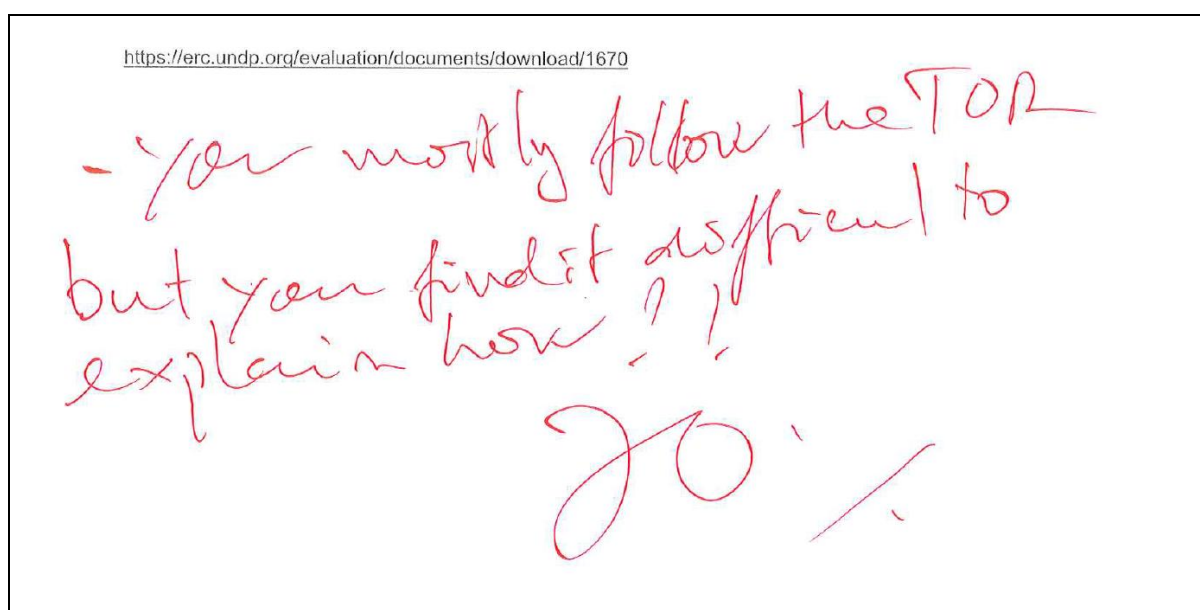 https://erc.undp.org/evaluation/documents/download/1670
- You mostly follow the TOR
but you find it difficul to
explain how?!
70 %